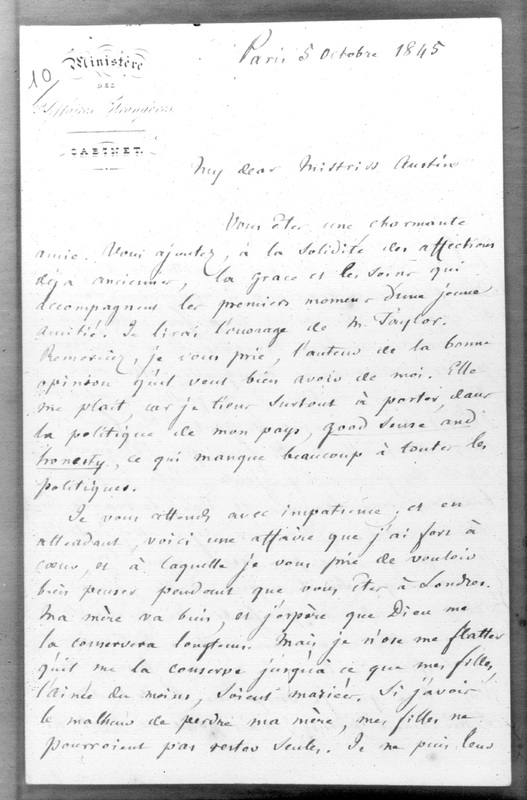 Ministère
DES
Affaires Étrangères
CABINET.
10
Paris 5 Octobre 1845
My dear Mistriss Austin
Vous êtes une charmante
amie. Vous ajoutez, à la solidité des affections
déjà anciennes, la grace et les soins qui
accompagnent les premiers momens d'une jeune
amitié. Je lirai l'ouvrage de Mr Taylor.
Remerciez, je vous prie, l'auteur de la bonne
opinion qu'il veut bien avoir de moi. Elle
me plait, car je tiens surtout à porter, dans
la politique de mon pays, good sense and
honesty, ce qui manque beaucoup à toutes les
politiques.
Je vous attends avec impatience, et en
attendant, voici une affaire que j'ai fort à
coeur, et à laquelle je vous prie de vouloir
bien penser pendant que vous êtes à Londres.
Ma mère va bien, et j'espère que Dieu me
la conservera longtems. Mais je n'ose me flatter
qu'il me la conserve jusqu'à ce que mes filles,
l'ainée du moins, soient mariées. Si j'avois
le malheur de perdre ma mère, mes filles ne
pourroient pas rester seules. Je ne puis leur